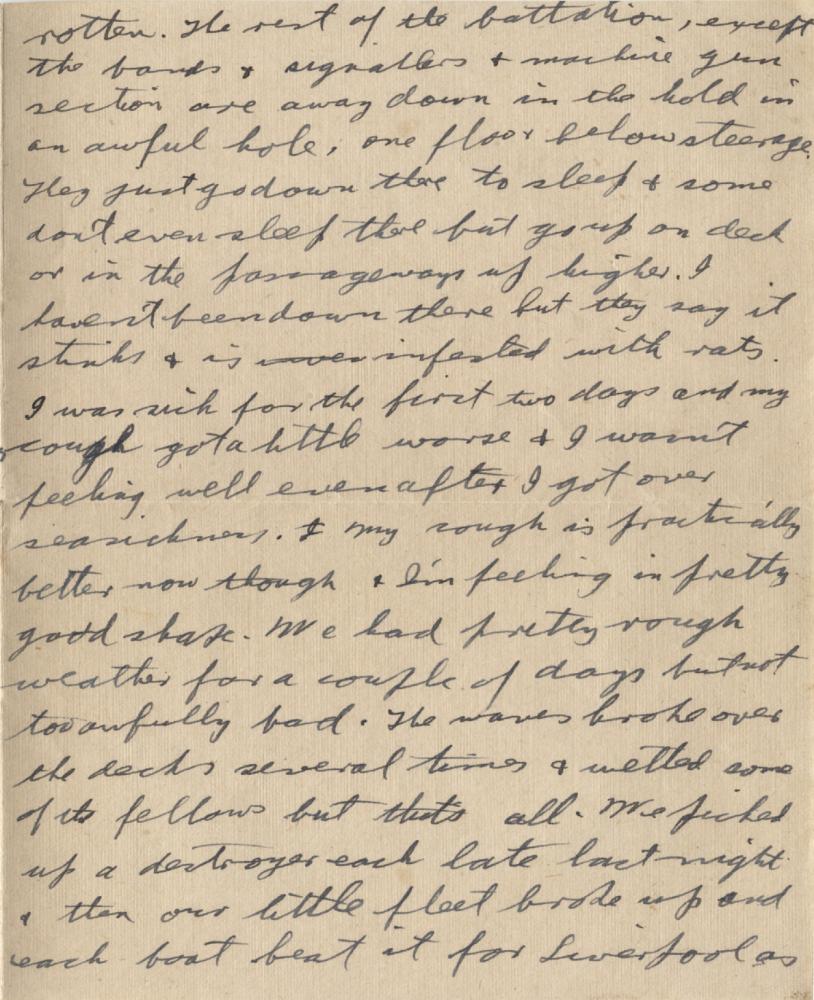 rotten. The rest of the battation, except
the bands & signallers & machine gun
section are away down in the hold in
an awful hole, one floor below steerage.
They just go down there to sleep & some
don't even sleep there but go up on deck
or in the passageways up higher. I
haven't been down there but they say it
stinks & is infested with rats.
I was sick for the first two days and my
cough got a little worse & I wasn't
feeling well even after I got over
seasickness. I my cough is practically
better now though & I'm feeling in pretty
good shape. We had pretty rough
weather for a couple of days but not
too awfully bad. The waves broke over
the decks several times & wetted some
of the fellows but that's all. We picked
up a destroyer each late last night
& then our little fleet broke up and
each boat beat it for Liverpool as